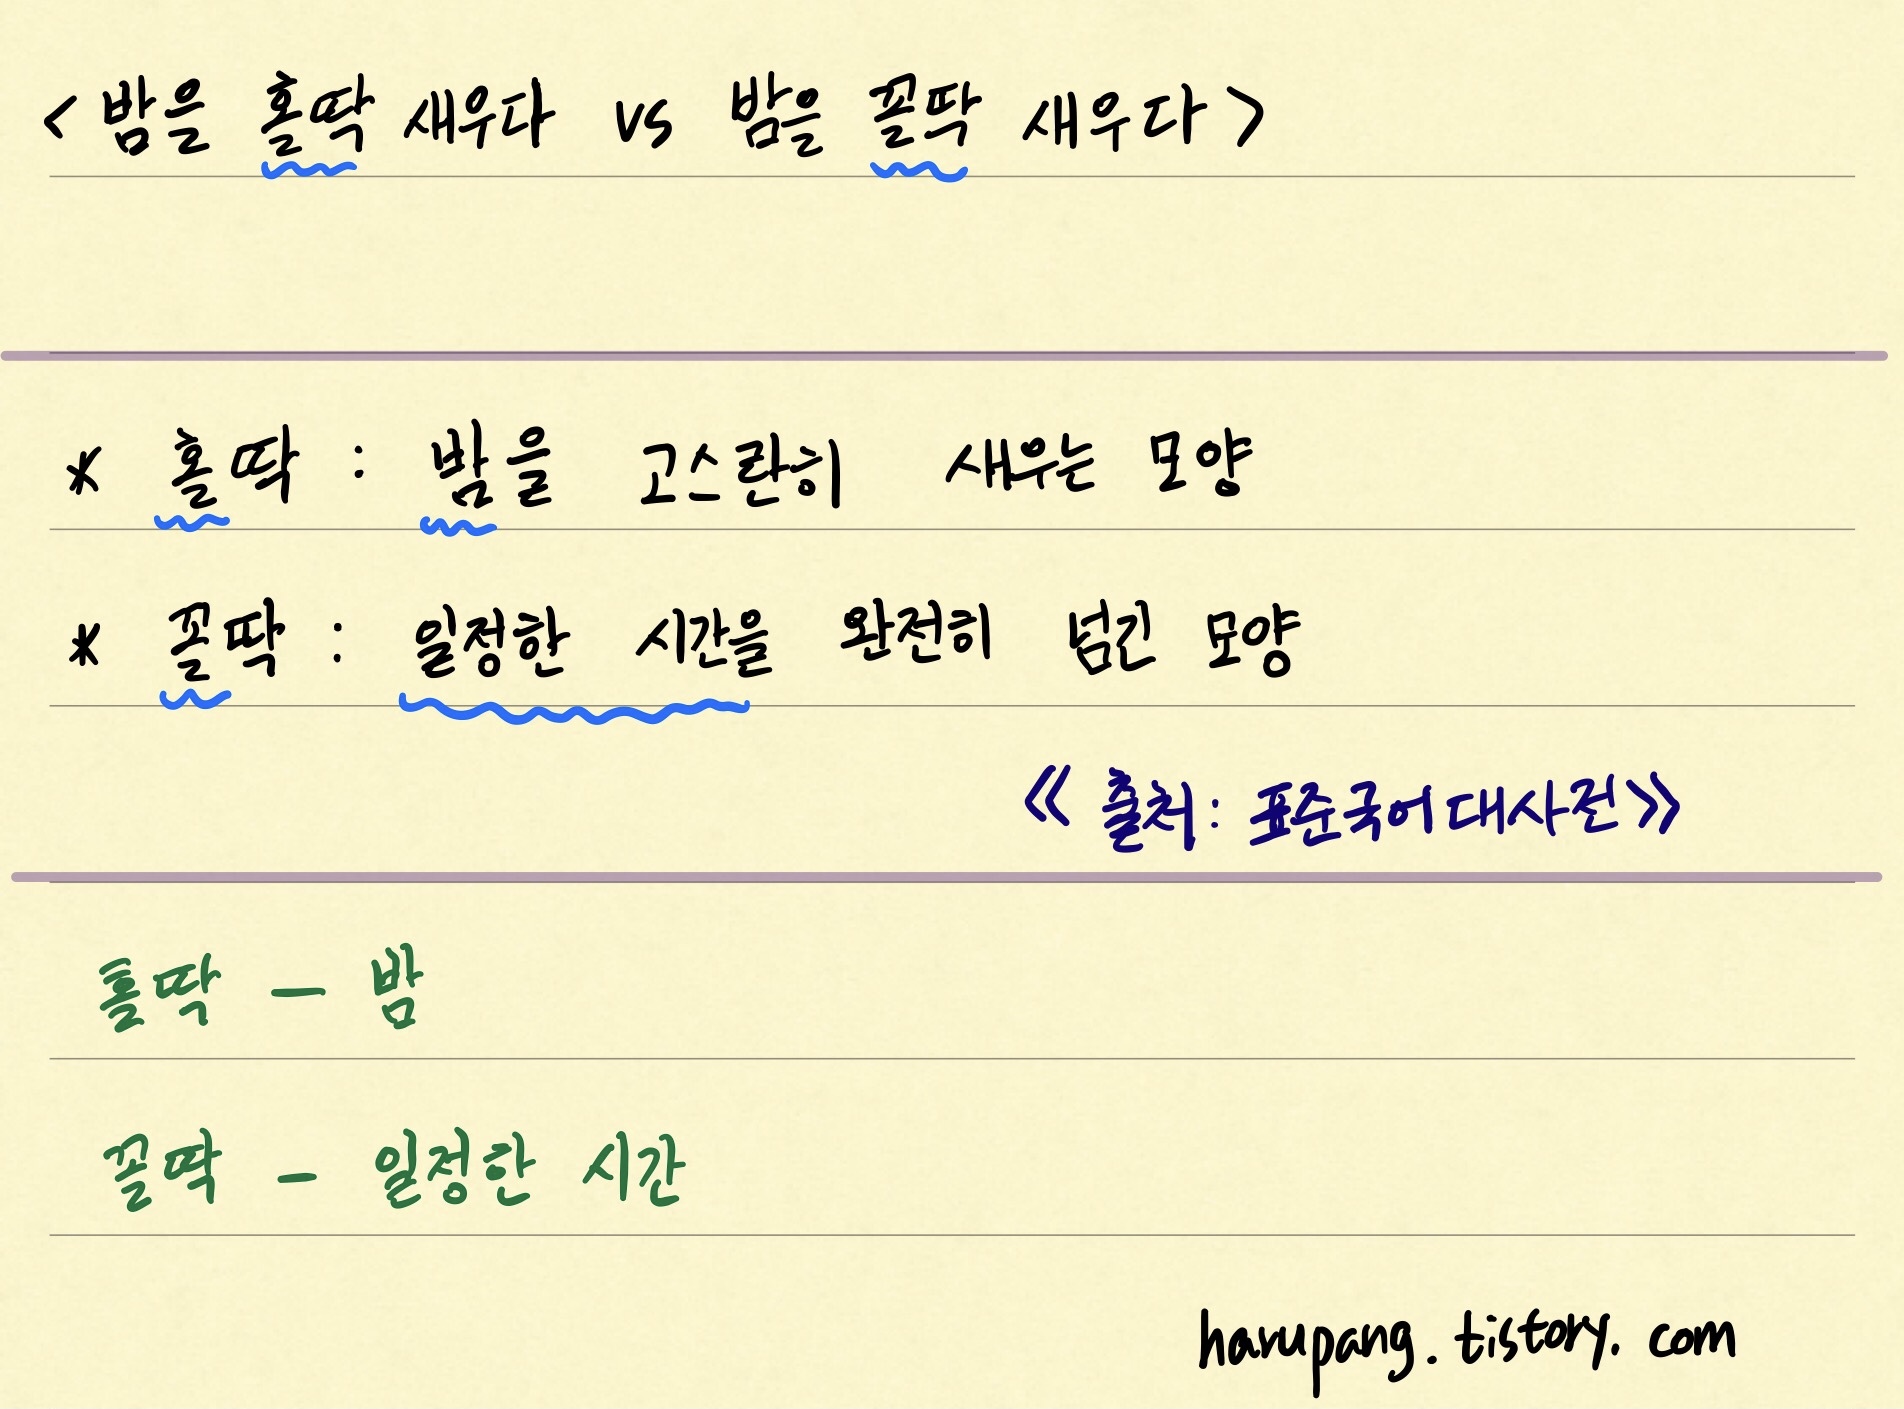 < 밤을 홀딱 새우다 vs 밤을 꼴딱 새우다 >
* 홀딱 : 밤을 고스란히 새우는 모양
* 꼴딱 : 일정한 시간을 완전히 넘긴 모양
《 출처 : 표준국어대사전 》
홀딱 - 밤
꼴딱 - 일정한 시간
harupang.tistory.com